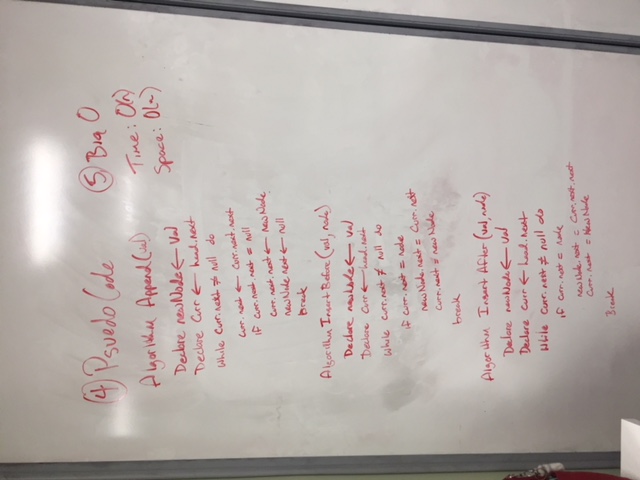 ④ Psuedo Code
Algorithm Append(val)
Declare newNode ← val
Declare Curr ← head.next
While curr.next ≠ null do
curr.next ← curr.next.next
if curr.next.next = null
curr.next.next ← newNode
newNode.next ← null
break
Algorithm Insert Before (val, node)
Declare newNode ← val
Declare Curr ← head.next
While curr.next ≠ null do
if curr.next = node
newNode.next = Curr.next
curr.next = newNode
break
Algorithm Insert After (val, node)
Declare newNode ← val
Declare curr ← head.next
While curr.next ≠ null do
if curr.next = node
newNode.next = Curr.next.next
Curr.next = NewNode
Break
⑤ Big O
Time: O(n)
Space: O(n)